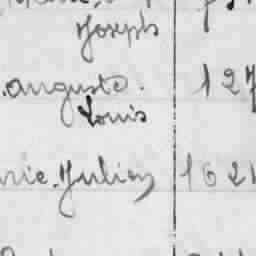 Joseph
auguste. 127
Louis
rie. Julien 162